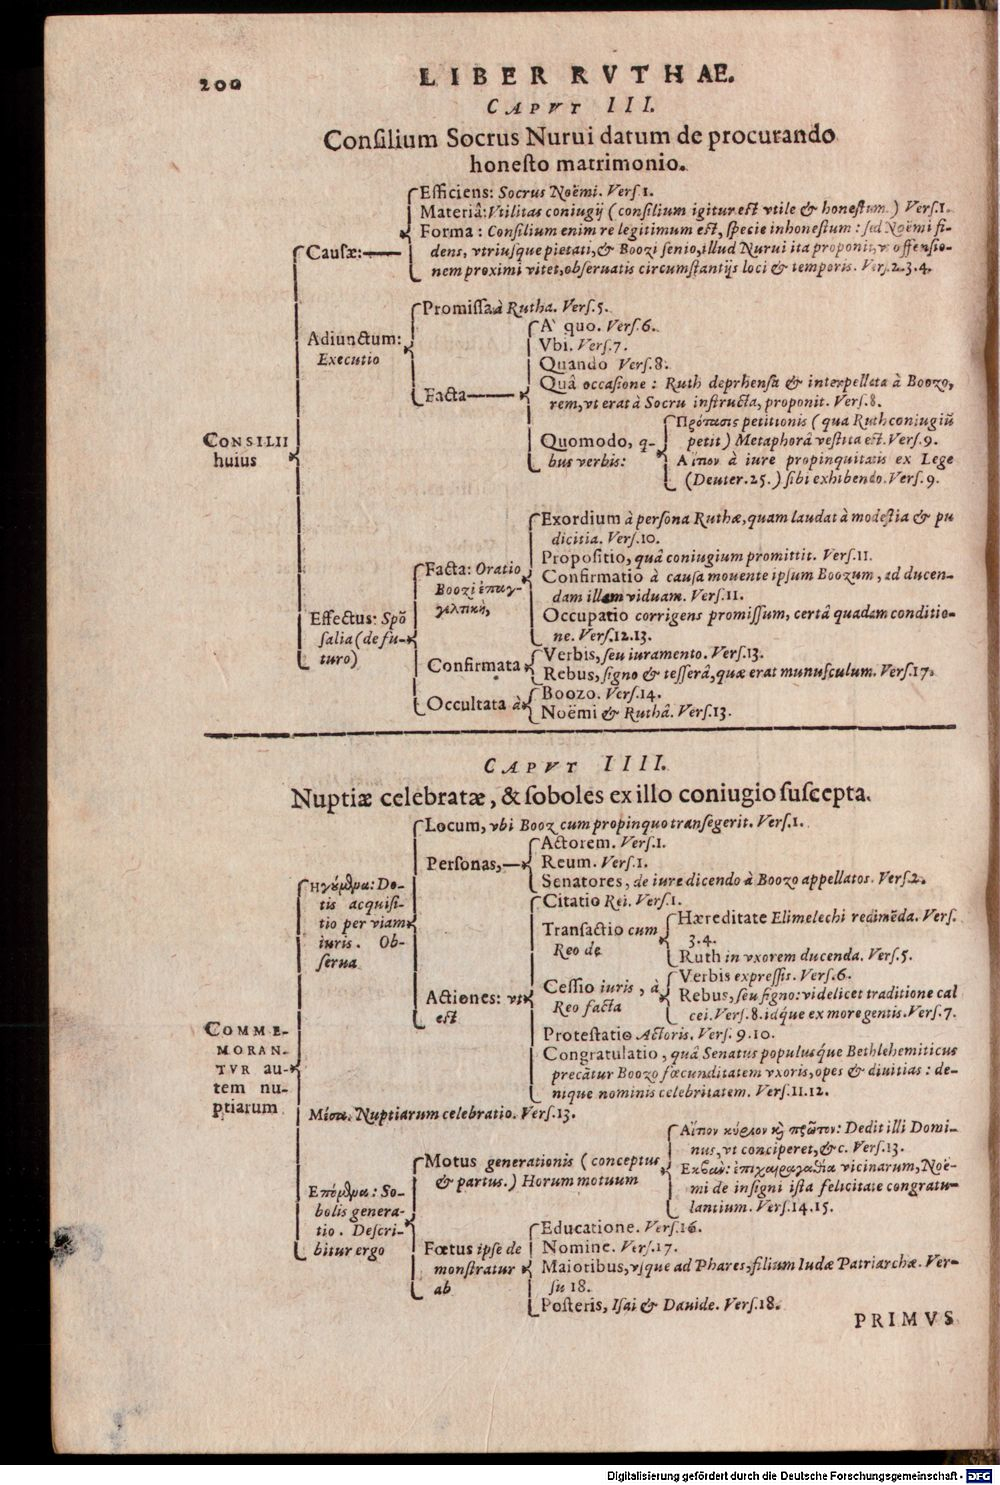 200
LIBER RVTHAE.
CAPVT III.
Conſilium Socrus Nurui datum de procurando
honeſto matrimonio.
CONSILII
huius
Cauſæ:
Efficiens: Socrus Noëmi. Verſ.1.
Materiâ: Vtilitas coniugij (conſilium igitur eſt vtile & honeſtum.) Verſ.1.
Forma: Conſilium enim re legitimum eſt, ſpecie inhoneſtum: ſed Noëmi fi-
dens, vtriuſque pietati, & Boozi ſenio, illud Nurui ita proponit, vt offenſio-
nem proximi vitet, obſeruatis circumſtantijs loci & temporis. Verſ.2.3.4.
Adiunctum:
Executio
Promiſſa à Rutha. Verſ.5.
Facta
A` quo. Verſ.6.
Vbi. Verſ.7.
Quando Verſ.8.
Quâ occaſione: Ruth deprhenſa & interpellata à Boozo,
rem, vt erat à Socru inſtructa, proponit. Verſ.8.
Quomodo, q-
bus verbis:
Πρότασις petitionis (qua Ruth coniugiũ
petit) Metaphorâ veſtita eſt. Verſ.9.
Αἴτιον à iure propinquitatis ex Lege
(Deuter.25.) ſibi exhibendo. Verſ.9.
Effectus: Spõ
ſalia (de fu-
turo)
Facta: Oratio
Boozi ἐπαγ-
γελτικὴ,
Exordium à perſona Ruthæ, quam laudat à modeſtia & pu
dicitia. Verſ.10.
Propoſitio, quâ coniugium promittit. Verſ.11.
Confirmatio à cauſa mouente ipſum Boozum, ad ducen-
dam illam viduam. Verſ.11.
Occupatio corrigens promiſſum, certâ quadam conditio-
ne. Verſ.12.13.
Confirmata
Verbis, ſeu iuramento. Verſ.13.
Rebus, ſigno & teſſerâ, quæ erat munuſculum. Verſ.17.
Occultata à
Boozo. Verſ.14.
Noëmi & Ruthâ. Verſ.13.
CAPVT IIII.
Nuptiæ celebratæ, & ſoboles ex illo coniugio ſuſcepta.
COMME-
MORAN-
TVR au-
tem nu-
ptiarum
Ηγούμενα: Do-
tis acquiſi-
tio per viam
iuris. Ob-
ſerua
Locum, vbi Booz cum propinquo tranſegerit. Verſ.1.
Perſonas,
Actorem. Verſ.1.
Reum. Verſ.1.
Senatores, de iure dicendo à Boozo appellatos. Verſ.2.
Actiones: vt
eſt
Citatio Rei. Verſ.1.
Tranſactio cum
Reo de
Hæreditate Elimelechi redimẽda. Verſ.
3.4.
Ruth in vxorem ducenda. Verſ.5.
Ceſſio iuris, à
Reo facta
Verbis expreſſis. Verſ.6.
Rebus, ſeu ſigno: videlicet traditione cal
cei. Verſ.8. idq́ue ex more gentis. Verſ.7.
Proteſtatio Actoris. Verſ. 9.10.
Congratulatio, quâ Senatus populusq́ue Bethlehemiticus
precãtur Boozo fœcunditatem vxoris, opes & diuitias: de-
nique nominis celebritatem. Verſ.11.12.
Μέσα. Nuptiarum celebratio. Verſ.13.
Επόμενα: So-
bolis genera-
tio. Deſcri-
bitur ergo
Motus generationis (conceptus
& partus.) Horum motuum
Αἴτιον κύριον καὶ πρῶτον: Dedit illi Domi-
nus, vt conciperet, &c. Verſ.13.
Εκβὰν: ἐπιχαιραγαθία vicinarum, Noë-
mi de inſigni iſta felicitate congratu-
lantium. Verſ.14.15.
Fœtus ipſe de
monſtratur
ab
Educatione. Verſ.16.
Nomine. Verſ.17.
Maioribus, vſque ad Phares, filium Iudæ Patriarchæ. Ver-
ſu 18.
Poſteris, Iſai & Dauide. Verſ.18.
PRIMVS
Digitalisierung gefördert durch die Deutsche Forschungsgemeinschaft - DFG